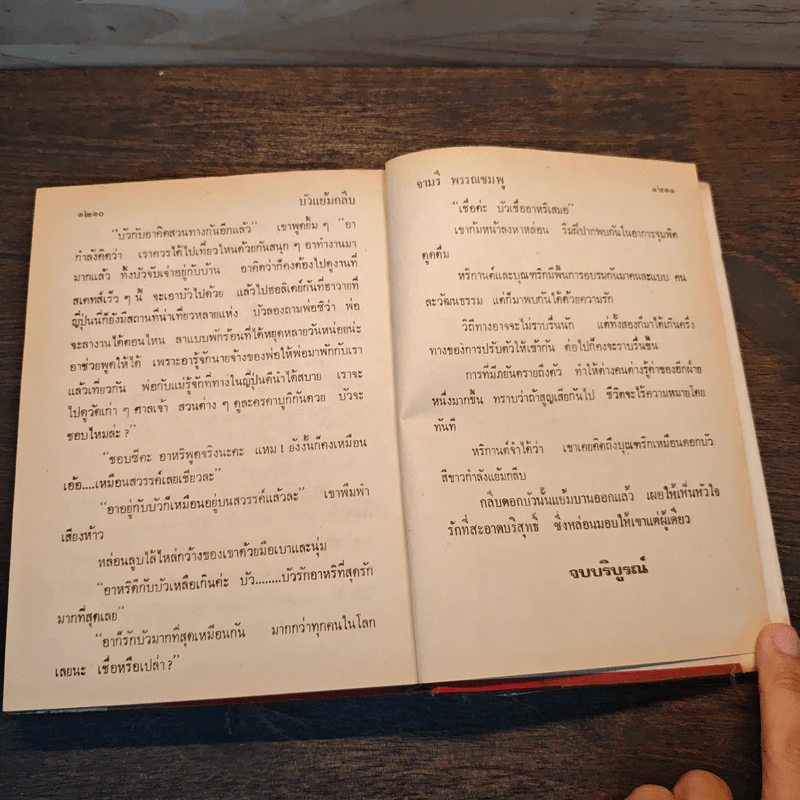 ๑๒๑๐ บัวแย้มกลีบ
“บัวกับอาคิดสวนทางกันอีกแล้ว” เขาพูดยิ้ม ๆ “อา
กำลังคิดว่า เราควรได้ไปเที่ยวไหนด้วยกันสนุก ๆ อาทำงานมา
มากแล้ว ทั้งบัวจับเจ่าอยู่กับบ้าน อาคิดว่าก็คงต้องไปดูงานที่
สเตทส์เร็ว ๆ นี้ จะเอาบัวไปด้วย แล้วไปฮอลิเดย์กันที่ฮาวายที่
ญี่ปุ่นนี่ก็ยังมีสถานที่น่าเที่ยวหลายแห่ง บัวลองถามพ่อซิว่า พ่อ
จะลางานได้ตอนไหน ลาแบบพักร้อนที่ได้หยุดหลายวันหน่อยน่ะ
อาช่วยพูดให้ได้ เพราะอารู้จักนายจ้างของพ่อให้พ่อมาพักกับเรา
แล้วเที่ยวกัน พ่อกับแม่รู้จักที่ทางในญี่ปุ่นดีนำได้สบาย เราจะ
ไปดูวัดเก่า ๆ ศาลเจ้า สวนต่าง ๆ ดูละครคาบูกิกันด้วย บัวจะ
ชอบไหมล่ะ ?”
“ชอบซีคะ อาหริพูดจริงนะคะ แหม ! ยังงั้นก็คงเหมือน
เอ้อ....เหมือนสวรรค์เลยเชียวละ”
“อาอยู่กับบัวก็เหมือนอยู่บนสวรรค์แล้วละ” เขาพึมพำ
เสียงห้าว
หล่อนลูบไล้ไหล่กว้างของเขาด้วยมือเบาและนุ่ม
“อาหริดีกับบัวเหลือเกินค่ะ บัว........บัวรักอาหริที่สุดรัก
มากที่สุดเลย”
“อาก็รักบัวมากที่สุดเหมือนกัน มากกว่าทุกคนในโลก
เลยนะ เชื่อหรือเปล่า ?”
จามรี พรรณชมพู ๑๒๑๑
“เชื่อค่ะ บัวเชื่ออาหริเสมอ”
เขาก้มหน้าลงหาหล่อน ริมฝีปากพบกันในอาการจุมพิต
ดูดดื่ม
หริกานต์และบุณฑริกมีพื้นการอบรมกันมาคนละแบบ คน
ละวัฒนธรรม แต่ก็มาพบกันได้ด้วยความรัก
วิถีทางอาจจะไม่ราบรื่นนัก แต่ทั้งสองก็มาได้เกินครึ่ง
ทางของการปรับตัวให้เข้ากัน ต่อไปก็คงจะราบรื่นขึ้น
การที่มีภยันตรายถึงตัว ทำให้ต่างคนต่างรู้ค่าของอีกฝ่าย
หนึ่งมากขึ้น ทราบว่าถ้าสูญเสียกันไป ชีวิตจะไร้ความหมายโดย
ทันที
หริกานต์จำได้ว่า เขาเคยคิดถึงบุณฑริกเหมือนดอกบัว
สีขาวกำลังแย้มกลีบ
กลีบดอกบัวนั้นแย้มบานออกแล้ว เผยให้เห็นหัวใจ
รักที่สะอาดบริสุทธิ์ ซึ่งหล่อนมอบให้เขาแต่ผู้เดียว
จบบริบูรณ์